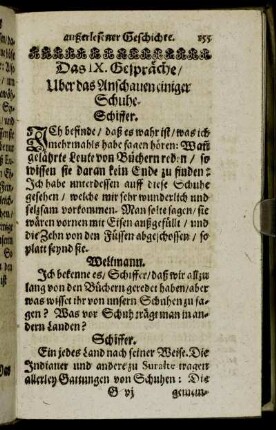 außerlesener Geschichte. 155
Das IX. Gespräche/
Uber das Anschauen einiger
Schuhe.
Schiffer.
ICh befinde/ daß es wahr ist/ was ich
mehrmahls habe sagen hören: Wañ
gelährte Leute von Büchern reden/ so
wissen sie daran kein Ende zu finden:
Ich habe unterdessen auff diese Schuhe
gesehen/ welche mir sehr wunderlich und
selzsam vorkommen. Man solte sagen/ sie
wären vornen mit Eisen außgefüllt/ und
die Zehn von den Füssen abgeschossen/ so
platt seynd sie.
Weltmann.
Ich bekenne es/ Schiffer/ daß wir allzu
lang von den Büchern geredet haben/ aber
was wisset ihr von unsern Schuhen zu sa-
gen? Was vor Schuh trägt man in an-
dern Landen?
Schiffer.
Ein jedes Land nach seiner Weise. Die
Indianer und andere zu Suratte tragen
allerley Gattungen von Schuhen: Die
G vj gemein-